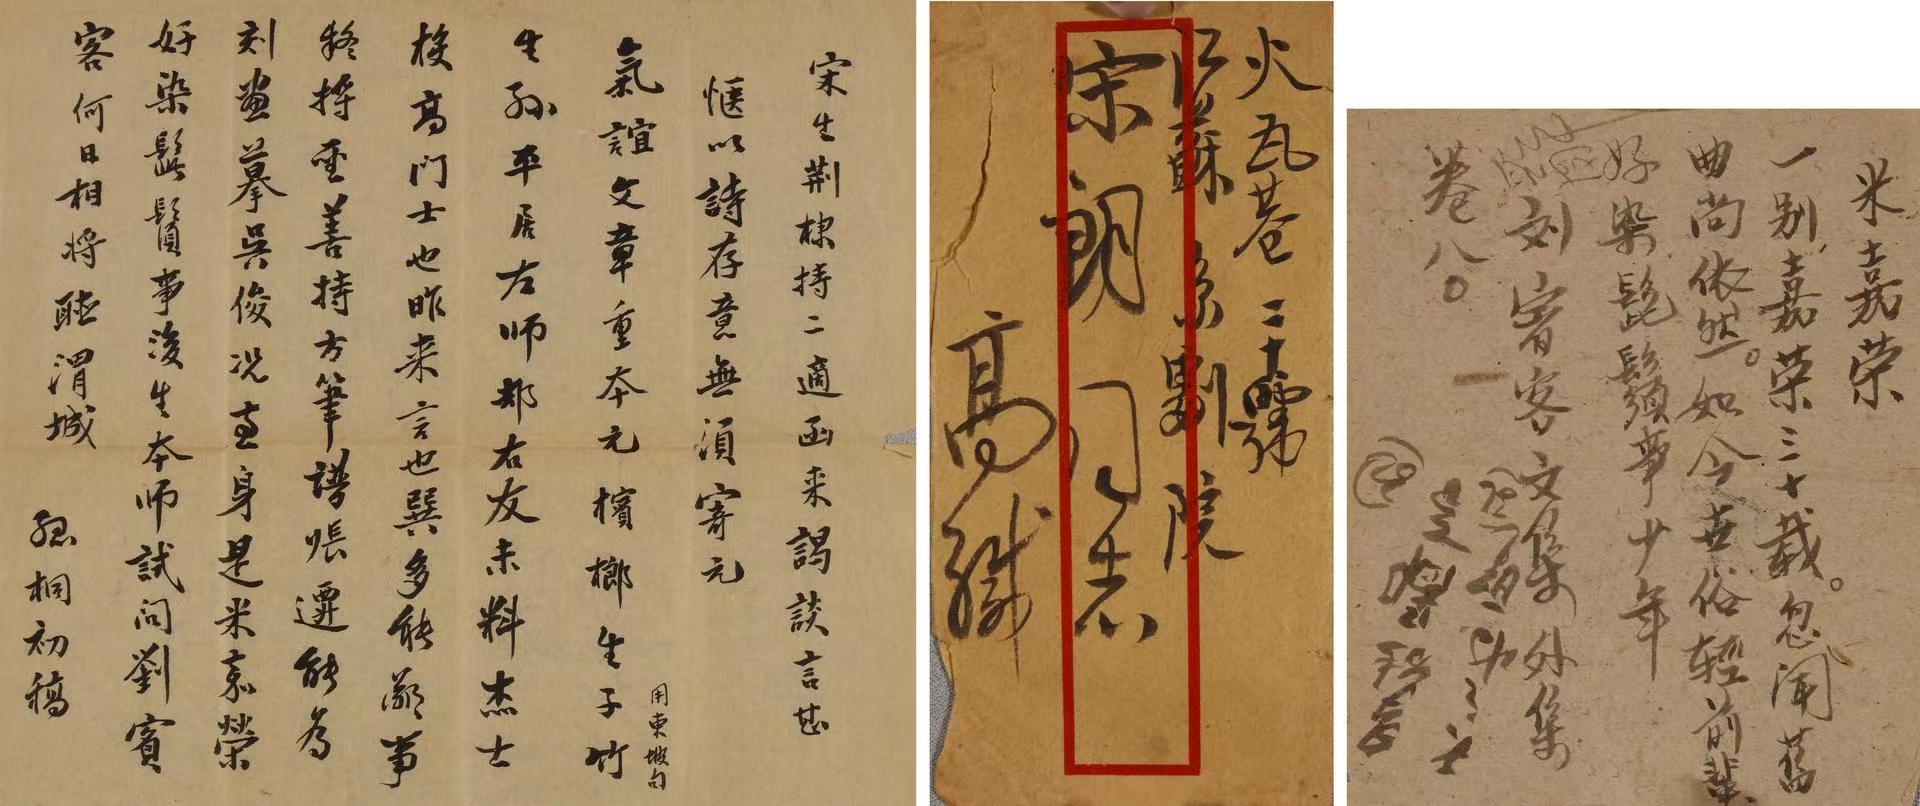 宋生荆棣持二適函来謁談言甚
惬以詩存意無須寄元
氣誼文章重本元檳榔生子竹
用東坡句
生孙平居左师都右友未料杰士
梭高门士也昨来言也巽多能鄙事
将垩善持方筆譜賬遷能为
刻畫摹吳俊况直身是米嘉榮
好染髭鬚事後生本师試问劉賓
客何日相将聴渭城
桐初稿
火瓦巷二十四號
江蘇京劇院
宋朗同志
高緘
米嘉荣
一别嘉荣三十载。忽闻舊
曲尚依然。如今世俗轻前輩
好染髭鬚事少年
刘宾客文集外集
卷八。